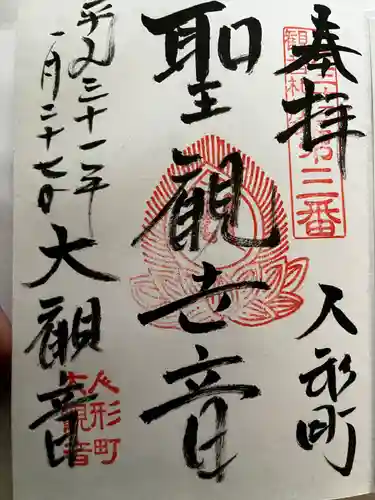 奉拝
第三番
人形町
聖観世音
平成三十一年
一月二十七日
大観音
人形町
大観音